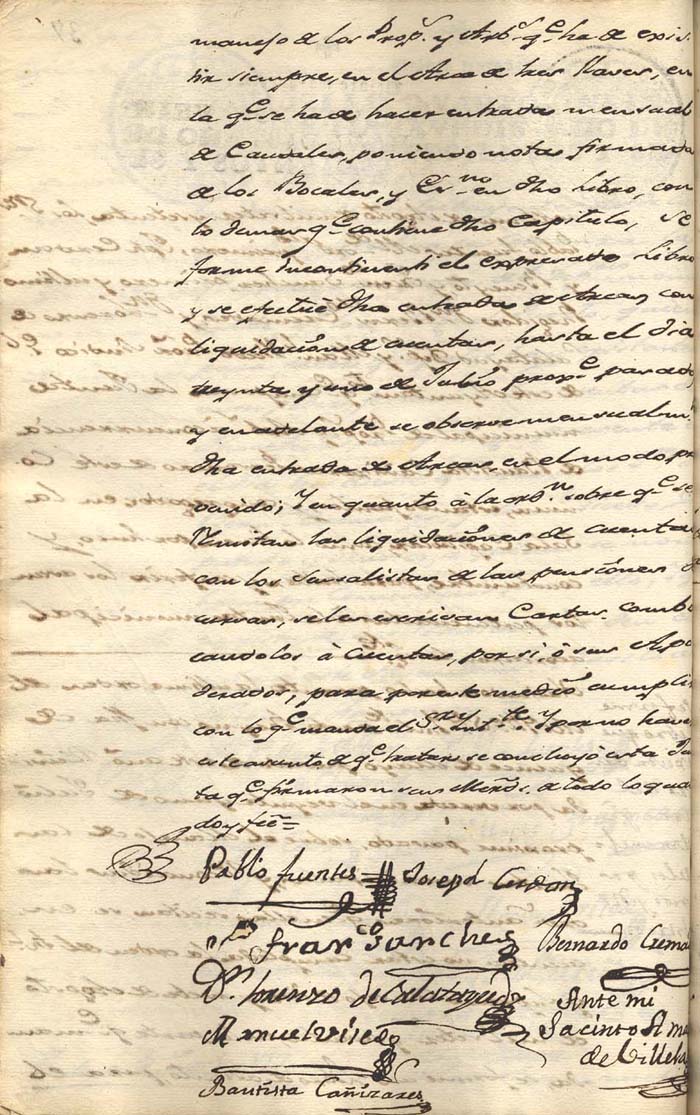 manejo de los Prop.s y Arb.s q.e ha de exis
tir siempre, en el Arca de tres llaves, en
la q.e se ha de hacer entrada mensual
de Caudales, poniendo nota firmada
de los Bocales, y Es.no en dho Libro, con
lo demas q.e contiene dho Capitulo, se
forme incontinenti el expresado Libro
y se efectúe dha entrada de Arcas con
liquidación de cuentas, hasta el dia
treynta y uno de Julio prox.o pasado
y en adelante se observe mensualm.
dha entrada de Arcas, en el modo pre
venido; Y en quanto à la orn. sobre q.e se
Remitan las liquidaciones de cuentas
con los Censalistas de las pensiones
cursas, se les escrivan Cartas, combo
candolos à Cuentas, por si, ò sus Apo
derados, para por este medio cumplir
con lo q.e manda el S.r Int.te Y por no haver
este asunto de q.e tratar se concluyó esta Jun
ta q.e firmaron sus Merds. de todo lo qual
doy fee=
Pablo fuentes Joseph Cerdan
fran.co Sanches Bernardo Crema
D.n Lorenzo de Calatayud
Manuel
Ante mi
Jacinto Ama
de Villena
Bautista Cañizares